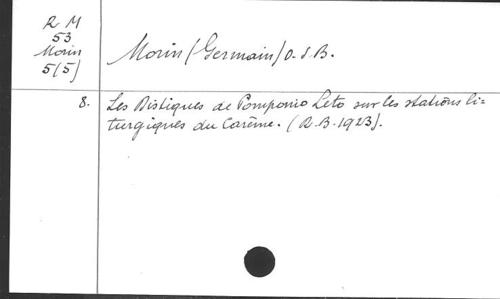 R M
53
Morin
5(5)
Morin (Germain) O.S.B.
8.
Les Distiques de Pomponio Leto sur les stations li-
turgiques du Carême. (R.B. 1923).